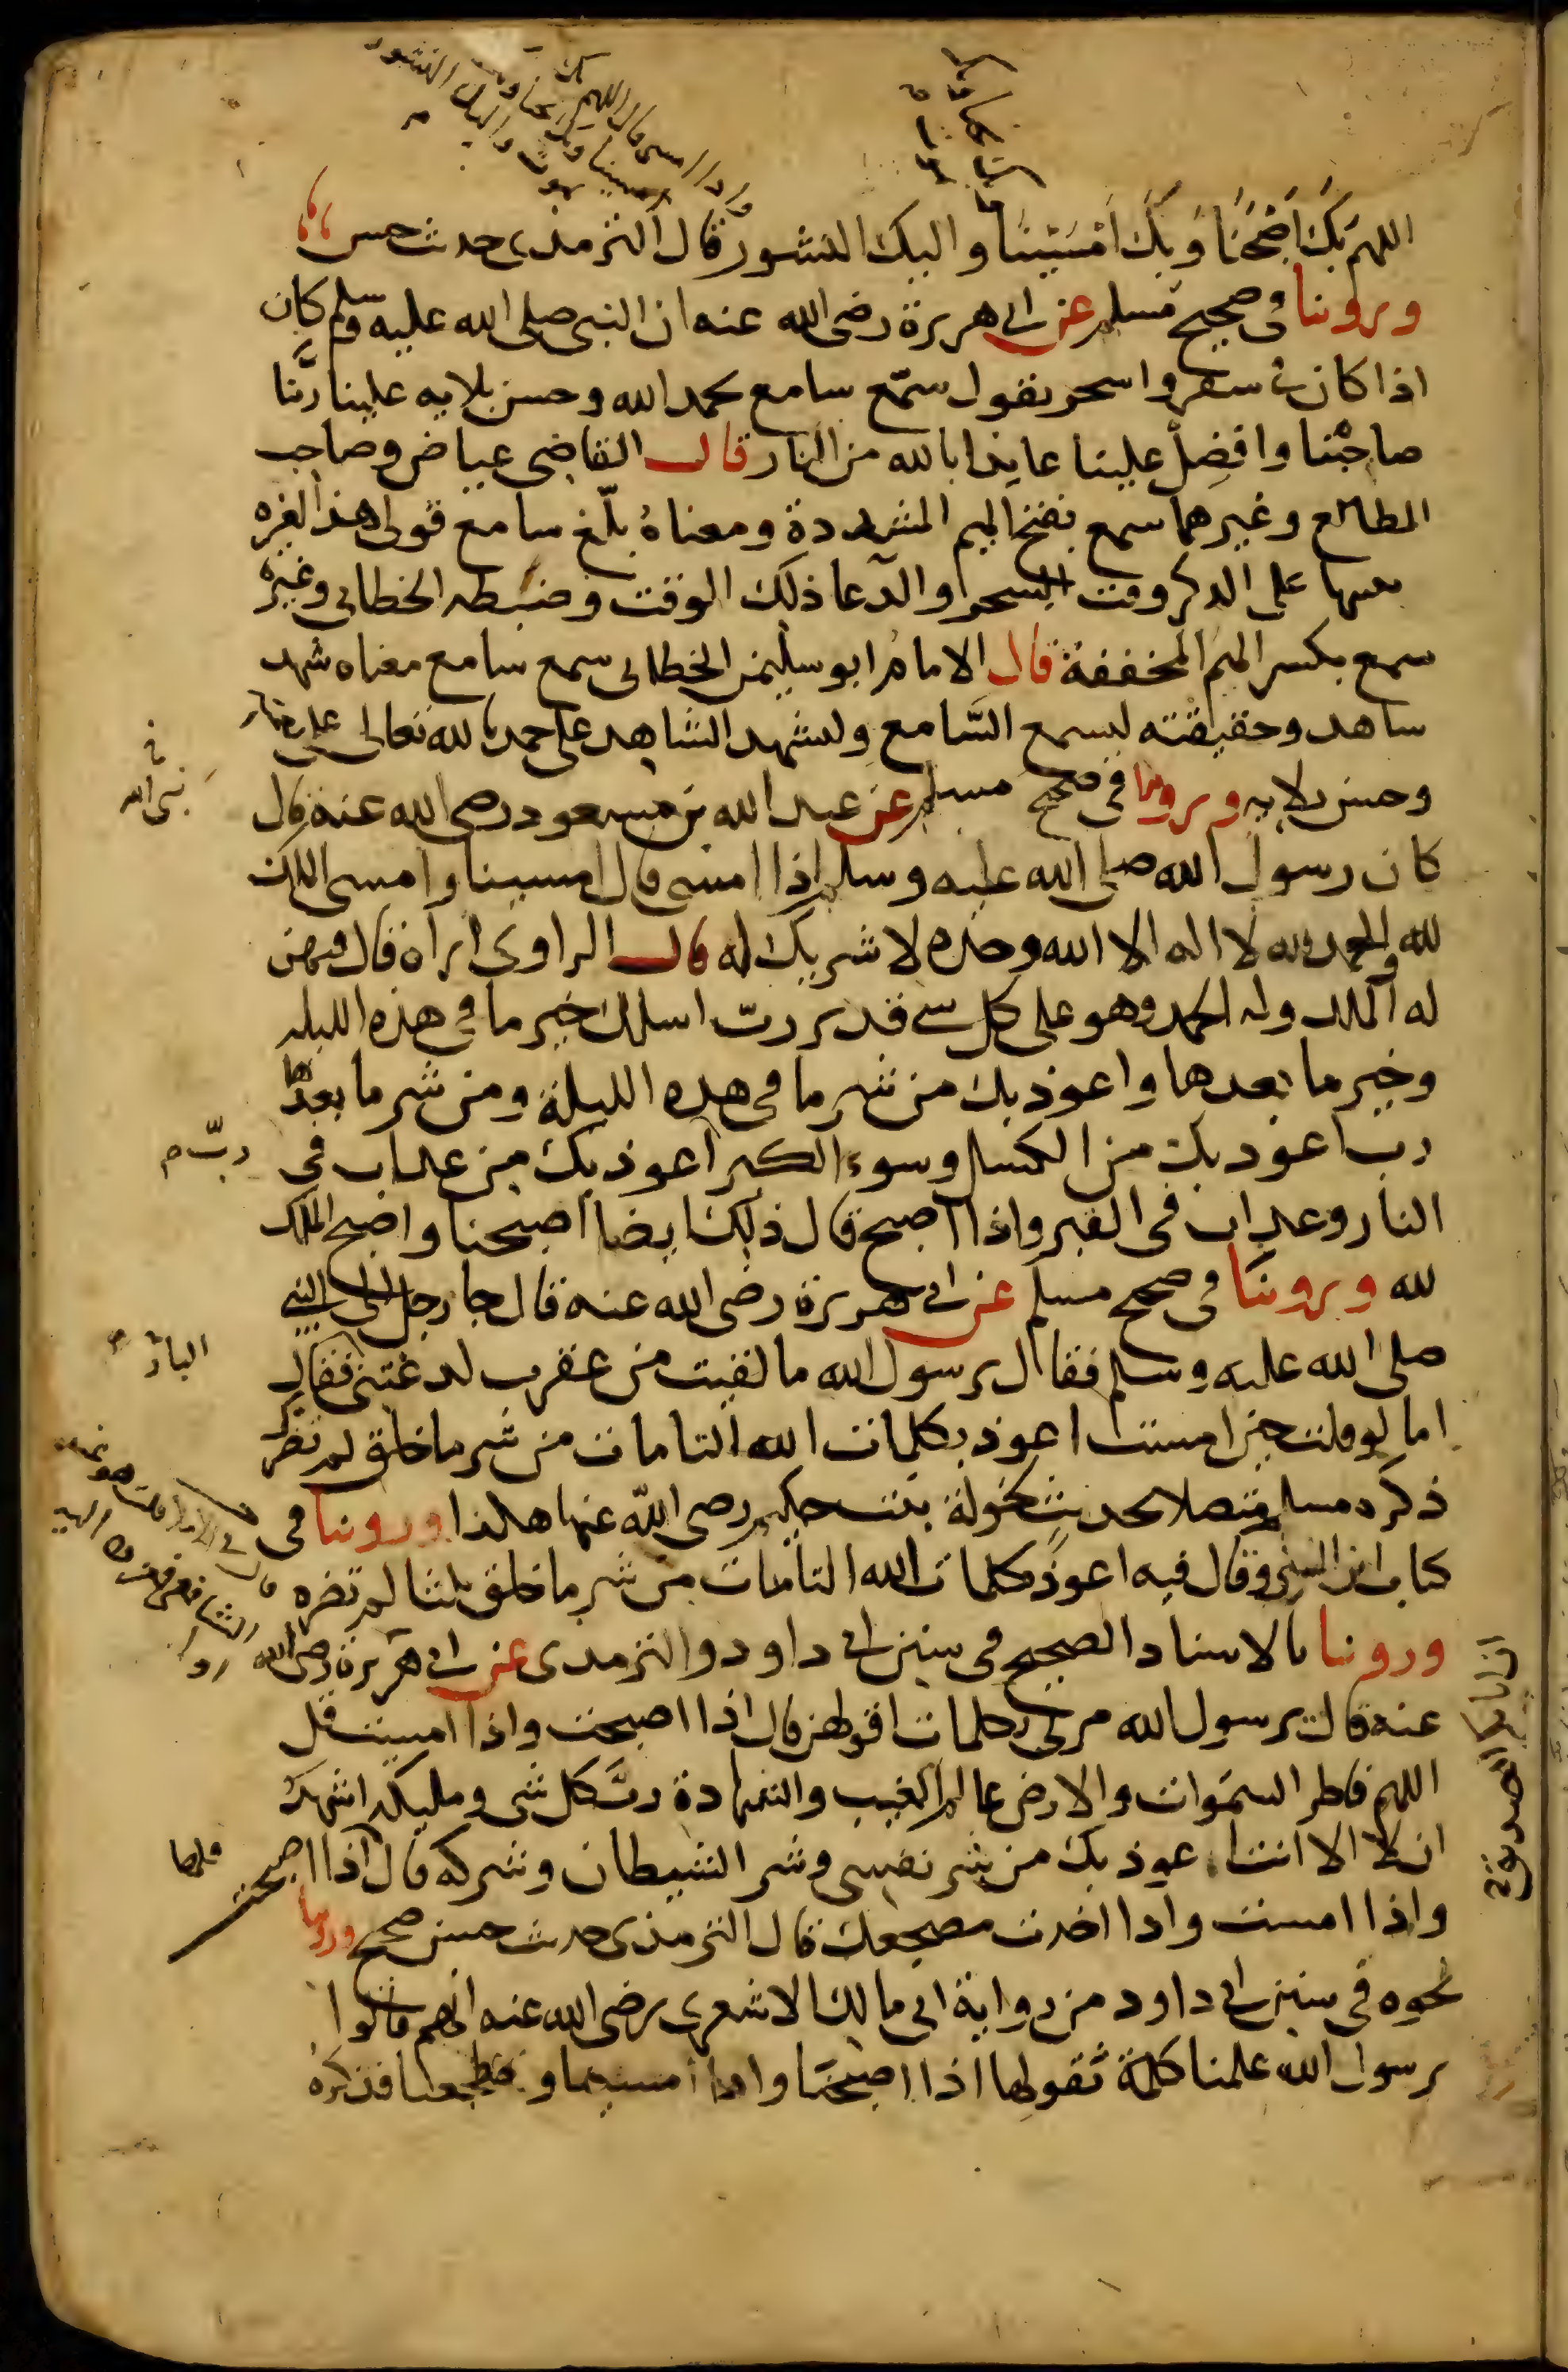 واذا امسى قال اللهم بك
امسينا وبك نحيا وبك
نموت واليك النشور
اللهم بك اصبحنا وبك امسينا واليك النشور قال الترمذي حديث حسن
وروينا في صحيح مسلم عن ابي هريرة رضي الله عنه ان النبي صلى الله عليه وسلم كان
اذا كان في سفر واسحر يقول سمع سامع بحمد الله وحسن بلايه علينا ربنا
صاحبنا وافضل علينا عايذا بالله من النار قال القاضي عياض وصاحب
المطالع وغيرهما سمع بفتح الميم المشددة ومعناه بلغ سامع قولي هذا لغيره
تنبيها على الذكر وقت السحر والدعا ذلك الوقت وضبطه الخطابي وغيره
سمع بكسر الميم المخففة قال الامام ابو سليمن الخطابي سمع سامع معناه شهد
شاهد وحقيقته ليسمع السامع وليشهد الشاهد على حمدنا لله تعالى على نعمه
وحسن بلايه وروينا في صحيح مسلم عن عبد الله بن مسعود رضي الله عنه قال
نبي الله
كان رسول الله صلى الله عليه وسلم اذا امسى قال امسينا وامسى الملك
لله والحمد لله لا اله الا الله وحده لا شريك له قال الراوي اراه قال فيهن
له الملك وله الحمد وهو على كل شي قدير رب اسلك خير ما في هذه الليله
وخير ما بعدها واعوذ بك من شر ما في هذه الليلة ومن شر ما بعدها
رب اعوذ بك من الكسل وسوء الكبر اعوذ بك من عذاب في
رب م
النار وعذاب في القبر واذا اصبح قال ذلك ايضا اصبحنا واصبح الملك
لله وروينا في صحيح مسلم عن ابي هريرة رضي الله عنه قال جا رجل الى النبي
صلى الله عليه وسلم فقال يرسول الله ما لقيت من عقرب لدغتني فقال
البارحة
اما لو قلت حين امسيت اعوذ بكلمات الله التامات من شر ما خلق لم تضرك
ذكره مسلم متصلا بحديث لخولة بنت حكيم رضي الله عنها هكذا وروينا في
كتاب ابن السني وقال فيه اعوذ بكلمات الله التامات من شر ما خلق ثلثا لم تضره
وروينا بالاسناد الصحيح في سنن ابي داود والترمذي عن ابي هريرة رضي الله
عنه قال يرسول الله مرني بكلمات اقولهن قال اذا اصبحت واذا امسيت قل
ان ابا بكر الصديق
اللهم فاطر السموات والارض عالم الغيب والشهادة رب كل شي ومليكه اشهد
ان لا اله الا انت اعوذ بك من شر نفسي وشر الشيطان وشركه قال اذا اصبحت
قلها
واذا امسيت واذا اخذت مضجعك قال الترمذي حديث حسن صحيح وروينا
نحوه في سنن ابي داود من رواية ابي مالك الاشعري رضي الله عنه انهم قالوا
يرسول الله علمنا كلمة نقولها اذا اصبحنا واذا امسينا واضطجعنا فذكره